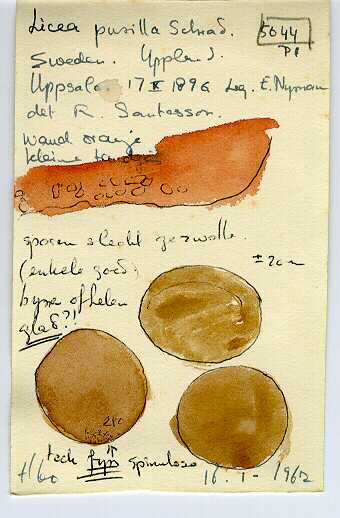 Licea pusilla Schrad.
5644
P1
Sweden. Uppland.
Uppsala. 17 X 1896 Leg. E. Nyman
det R. Santesson.
wand oranje
kleine
sporen slecht gezwollen.
(enkele goed)
± 20 m
bijna of helen
glad?!
toch fijn spinuloso
16-1-1962